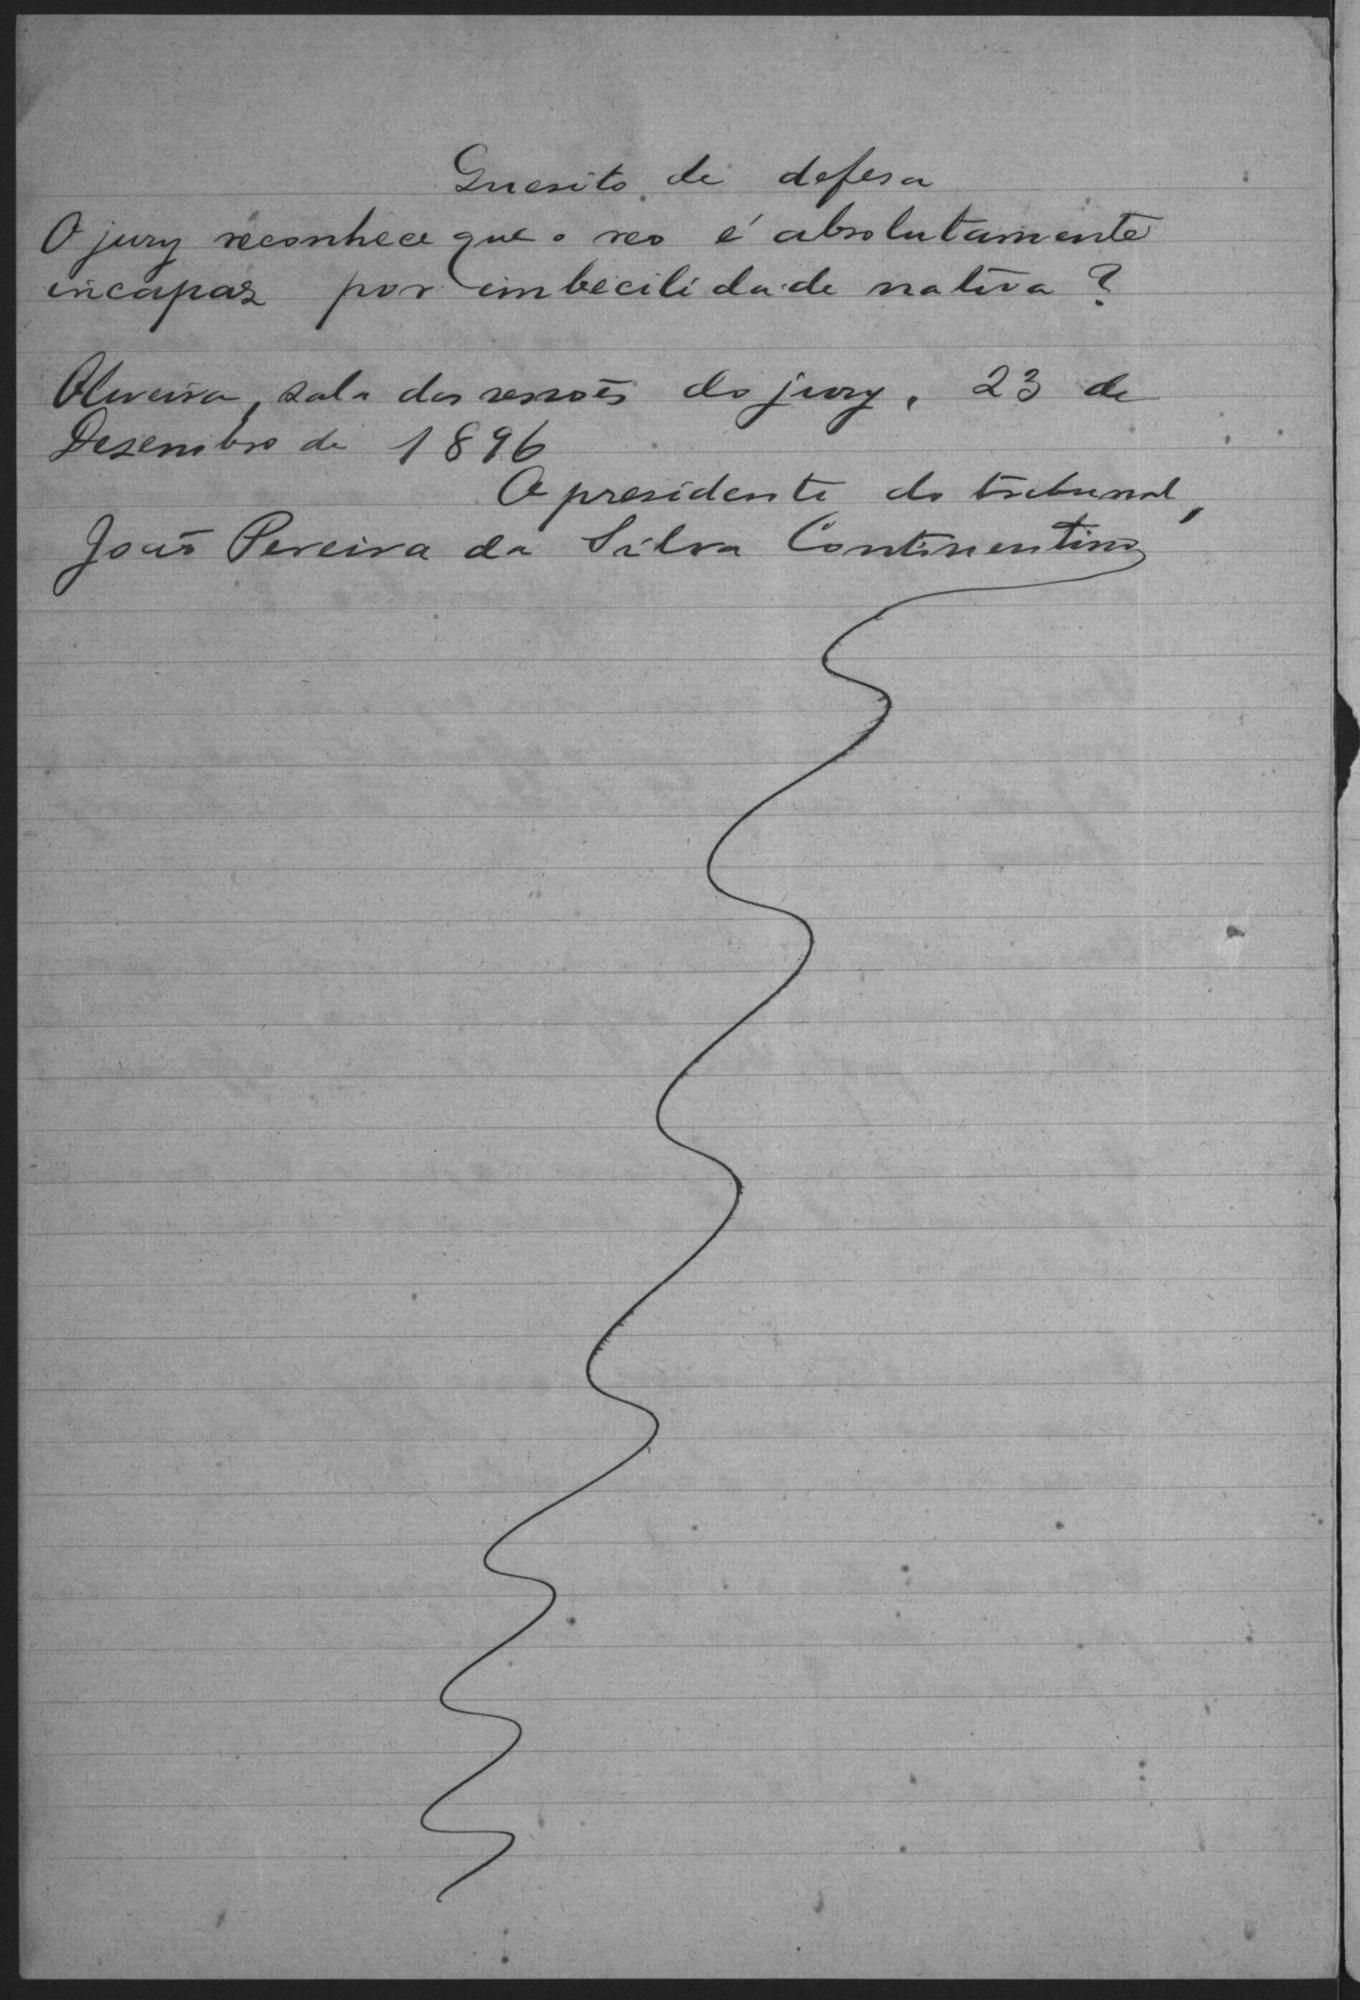 Quesito de defesa
O jury reconhece que o reo é absolutamente
incapaz por imbecilidade nativa?
Oliveira, sala das sessões do jury, 23 de
Desembro de 1896
O presidente do tribunal,
João Pereira da Silva Continentino